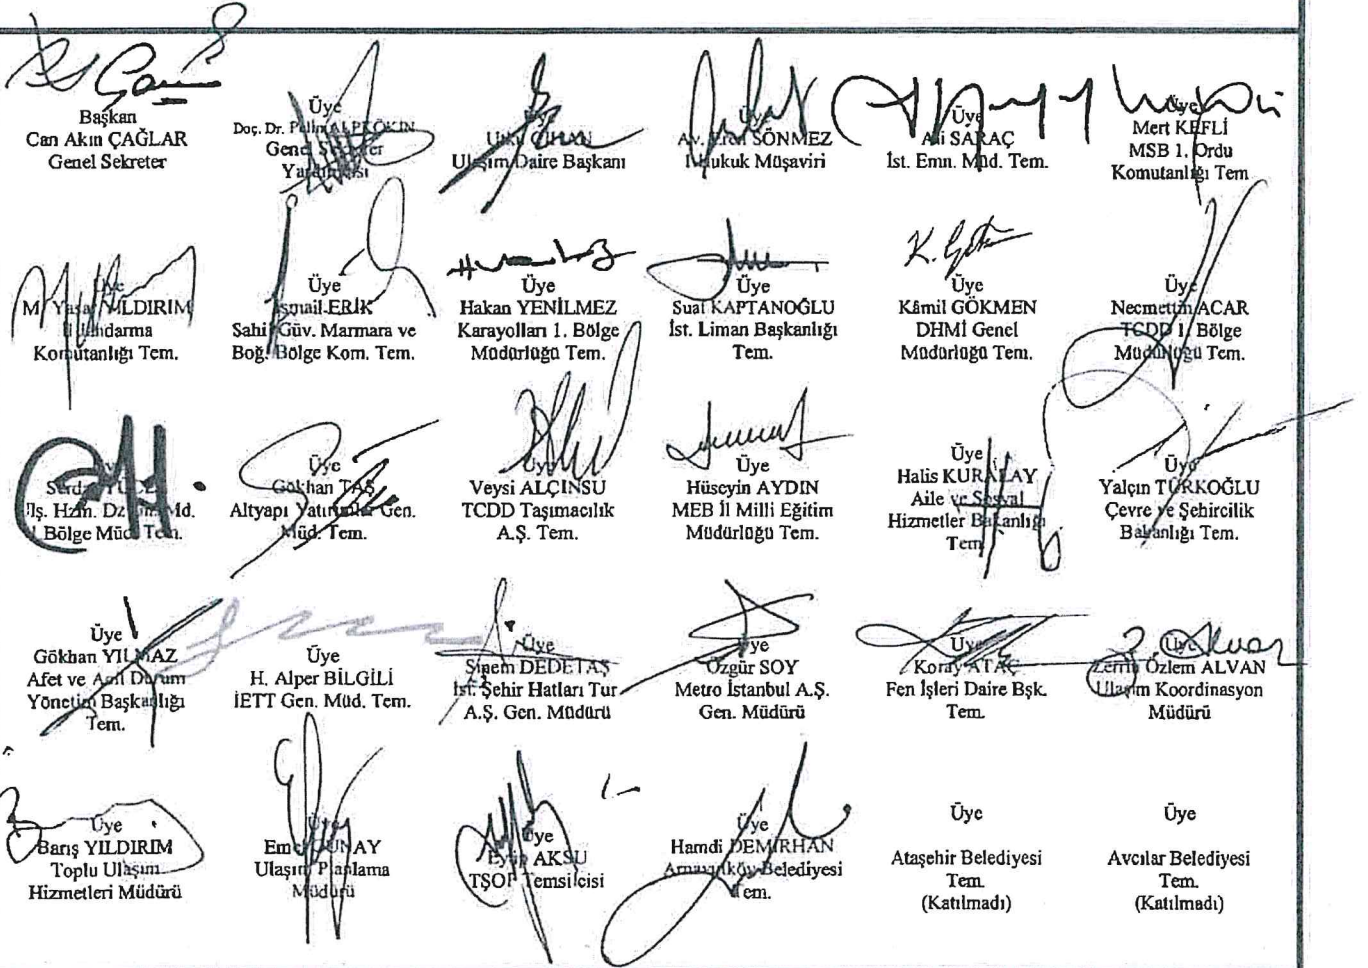 Başkan
Can Akın ÇAĞLAR
Genel Sekreter
Üye
Doç. Dr. Pelin ALPKÖKİN
Genel Sekreter
Yardımcısı
Üye
Utku CİHAN
Ulaşım Daire Başkanı
Üye
Av. SÖNMEZ
Hukuk Müşaviri
Üye
Ali SARAÇ
İst. Emn. Müd. Tem.
Üye
Mert KEFLİ
MSB 1. Ordu
Komutanlığı Tem
Üye
M. Yaşar YILDIRIM
İl Jandarma
Komutanlığı Tem.
Üye
İsmail ERİK
Sahil Güv. Marmara ve
Boğ. Bölge Kom. Tem.
Üye
Hakan YENİLMEZ
Karayolları 1. Bölge
Müdürlüğü Tem.
Üye
Suat KAPTANOĞLU
İst. Liman Başkanlığı
Tem.
Üye
Kâmil GÖKMEN
DHMİ Genel
Müdürlüğü Tem.
Üye
Necmettin ACAR
TCDD 1. Bölge
Müdürlüğü Tem.
Serdar
Ulş. Hzm. Md.
Bölge Müd. Tem.
Üye
Gökhan TAŞ
Altyapı Yatırımlar Gen.
Müd. Tem.
Üye
Veysi ALÇINSU
TCDD Taşımacılık
A.Ş. Tem.
Üye
Hüseyin AYDIN
MEB İl Milli Eğitim
Müdürlüğü Tem.
Üye
Halis KURALAY
Aile ve Sosyal
Hizmetler Bakanlığı
Tem
Üye
Yalçın TÜRKOĞLU
Çevre ve Şehircilik
Bakanlığı Tem.
Üye
Gökhan YILMAZ
Afet ve Acil Durum
Yönetim Başkanlığı
Tem.
Üye
H. Alper BİLGİLİ
İETT Gen. Müd. Tem.
Üye
Sinem DEDETAŞ
İst. Şehir Hatları Tur
A.Ş. Gen. Müdürü
Üye
Özgür SOY
Metro İstanbul A.Ş.
Gen. Müdürü
Üye
Koray ATAÇ
Fen İşleri Daire Bşk.
Tem.
Üye
Özlem ALVAN
Ulaşım Koordinasyon
Müdürü
Üye
Barış YILDIRIM
Toplu Ulaşım
Hizmetleri Müdürü
Üye
GÜNAY
Ulaşım Planlama
Müdürü
Üye
Eyüp AKSU
TŞOF Temsilcisi
Üye
Hamdi DEMİRHAN
Arnavutköy Belediyesi
Tem.
Üye
Ataşehir Belediyesi
Tem.
(Katılmadı)
Üye
Avcılar Belediyesi
Tem.
(Katılmadı)